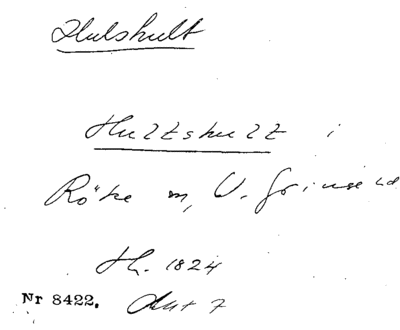 Hulshult
Hultshult i
Röke sn, V. Göinge hd
Th. 1824
Nr 8422. Akt 7